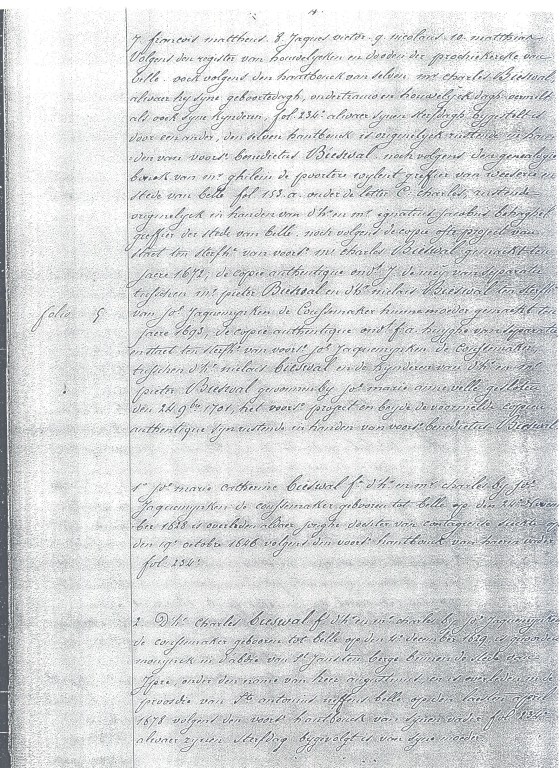 7. francois mattheus. 8. Jaques victor. 9. nicolaus. 10. matthias
Volgens den register van houwelycken en dooden der prochiekercke van
belle. noch volgens den hantbouck van selven mr. charles Bieswal
alwaer hy syne geboortedagh, ondertrauw en houwelyck dagh vermelt
als oock syne kynderen, fol. 234. alwaer synen sterfdagh bygestelt is
door een ander, den selven hantbouck is originelyck rustende in han
den van voorst. benedictus Bieswal. noch volgens den genealogie
bouck van mr. ghilein de poortere wylent greffier van
stede van belle fol. 153. a. onder de letter C. charles, rustende
originelyck in handen van d'hr. en mr. ignatius jacobus behaghel
greffier der stede van belle. noch volgens de copie ofte project van
staet ten sterfh. van voorst. mr. charles Bieswal gemaeckt ten
jaere 1672, de copie authentique ondt. J. de meij van separatie
tusschen mr. pieter Bieswal en d'hr. nicolais Bieswal ten sterfh.
van jor. Jaquemynken de Coussemaker hunne moeder gemaeckt ten
jaere 1693, de copie authentique ondt. f. a. huyghe van separatie
in staet ten sterfh. van voorst. jor. Jaquemynken de Coussemaker
tusschen d'hr. nicolais bieswal en de kynderen van d'hr. en mr.
pieter Bieswal gewonnen by jor. marie anne velle gesloten
den 24. 9bre 1701, het voorst. project en beyde de voormelde copien
authentique syn rustende in handen van voorst. benedictus Bieswal
folio 5
1. jor. marie catherine bieswal fa. d'hr. en mr. charles by jor.
Jaquemynken de coussemaker geboren tot belle op den 24. novem
ber 1628 is overleden alwaer jonghe dochter van contagieuse sieckte
den 19. octobre 1646 volgens den voorst. hantbouck van haeren vader
fol. 234.
2. D'hr. charles bieswal f. d'hr. en mr. charles by jor. Jaquemynken
de coussemaker geboren tot belle op den 4. december 1629 is geworden
monynck in d'abdie van St. Jans ten berge binnen de stede van
Ypre, onder den naeme van heer augustinus en is overleden in de
provosdie van Ste. antonius neffens belle op den laesten april
1678 volgens den voorst. hantbouck van synen vader fol. 234.
alwaer zynen sterfdag bygevolgt is van syne moeder